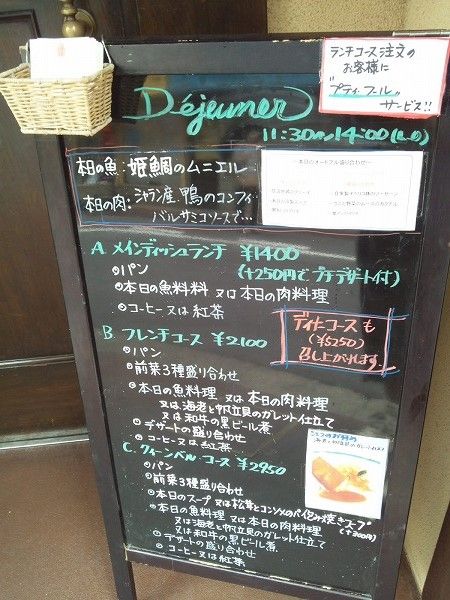 ランチコース注文の
お客様に
"プティフール"
サービス!!
Déjeuner
11:30〜14:00(L.O)
本日の魚:姫鯛のムニエル
本日の肉:シャラン産、鴨のコンフィ
バルサミコソースで…
〜本日のオードブル盛り合わせ〜
A. メインディッシュランチ ¥1400
・パン (+250円でプチデザート付)
・本日の魚料料 又は 本日の肉料理
・コーヒー 又は 紅茶
B. フレンチコース ¥2100
・パン
・前菜3種盛り合わせ
・本日の魚料理 又は 本日の肉料理
又は 海老と帆立貝のガレット仕立て
又は 和牛の黒ビール煮
・デザートの盛り合わせ
・コーヒー又は紅茶
ディナーコースも
(¥5250)
召し上がれます
C. クィーンベル コース ¥2950
・パン
・前菜3種盛り合わせ
・本日のスープ 又は 松茸とコンソメのパイ包み焼きスープ
(+300円)
・本日の魚料理 又は 本日の肉料理
又は 海老と帆立貝のガレット仕立て
又は 和牛の黒ビール煮
・デザートの盛り合わせ
・コーヒー 又は 紅茶